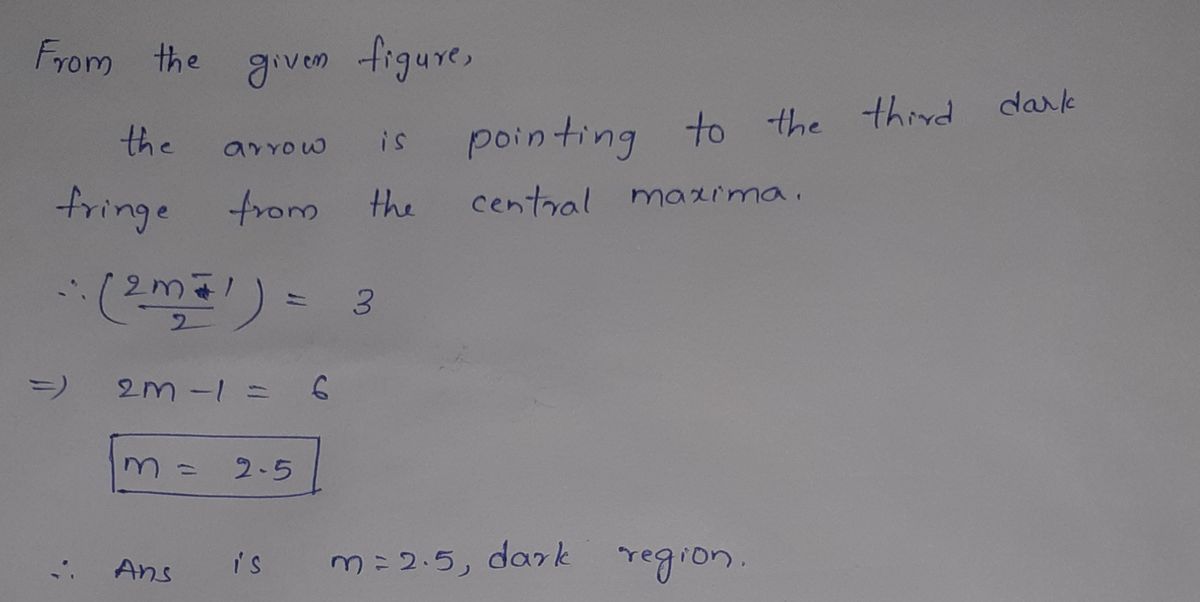 From the given figure,
the arrow is pointing to the third dark
fringe from the central maxima.
∴ (2m-1/2) = 3
=) 2m-1 = 6
m = 2.5
∴ Ans is m=2.5, dark region.